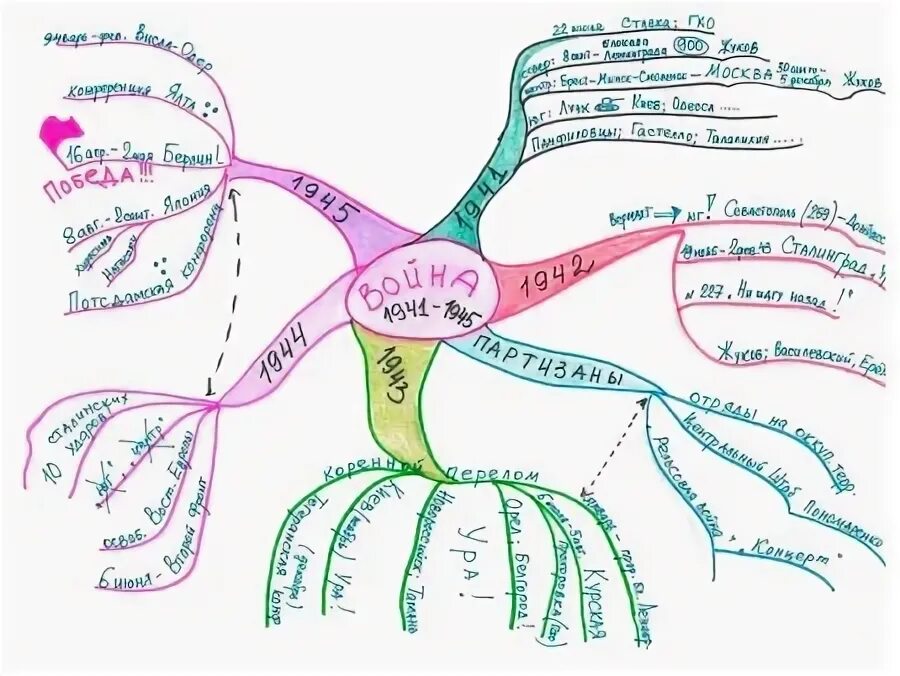 ВОЙНА
1941-1945
1941
22 июня Ставка; ГКО
блокада
север: 8 сент - Ленинграда 900 Жуков
центр: Брест-Минск-Смоленск- МОСКВА Жуков
юг: Луцк Киев; Одесса .....
Панфиловцы; Гастелло; Талалихин .....
1942
Вермахт юг! Севастополь
Сталинград
№227. Ни шагу назад!"
Жуков; Василевский,
ПАРТИЗАНЫ
ОТРЯДЫ НА ОККУП. ТЕРР.
Центральный Штаб Пономаренко
Рельсовая война
"Концерт"
1943
Коренной перелом
Тегеранская конф
(декабрь)
Киев Ура!
Новороссийск: Тамань
Ура!
Орёл: Белгород!
Прохоровка
Курская
1944
10 сталинских ударов!
"юг"
"центр"
освоб. Вост. Европы
6 июня- Второй фронт
1945
январь-фев. Висла-Одер
конференция Ялта
16 апр.-2 мая Берлин!
ПОБЕДА!!!
Япония
Хиросима
Нагасаки
Потсдамская конференц